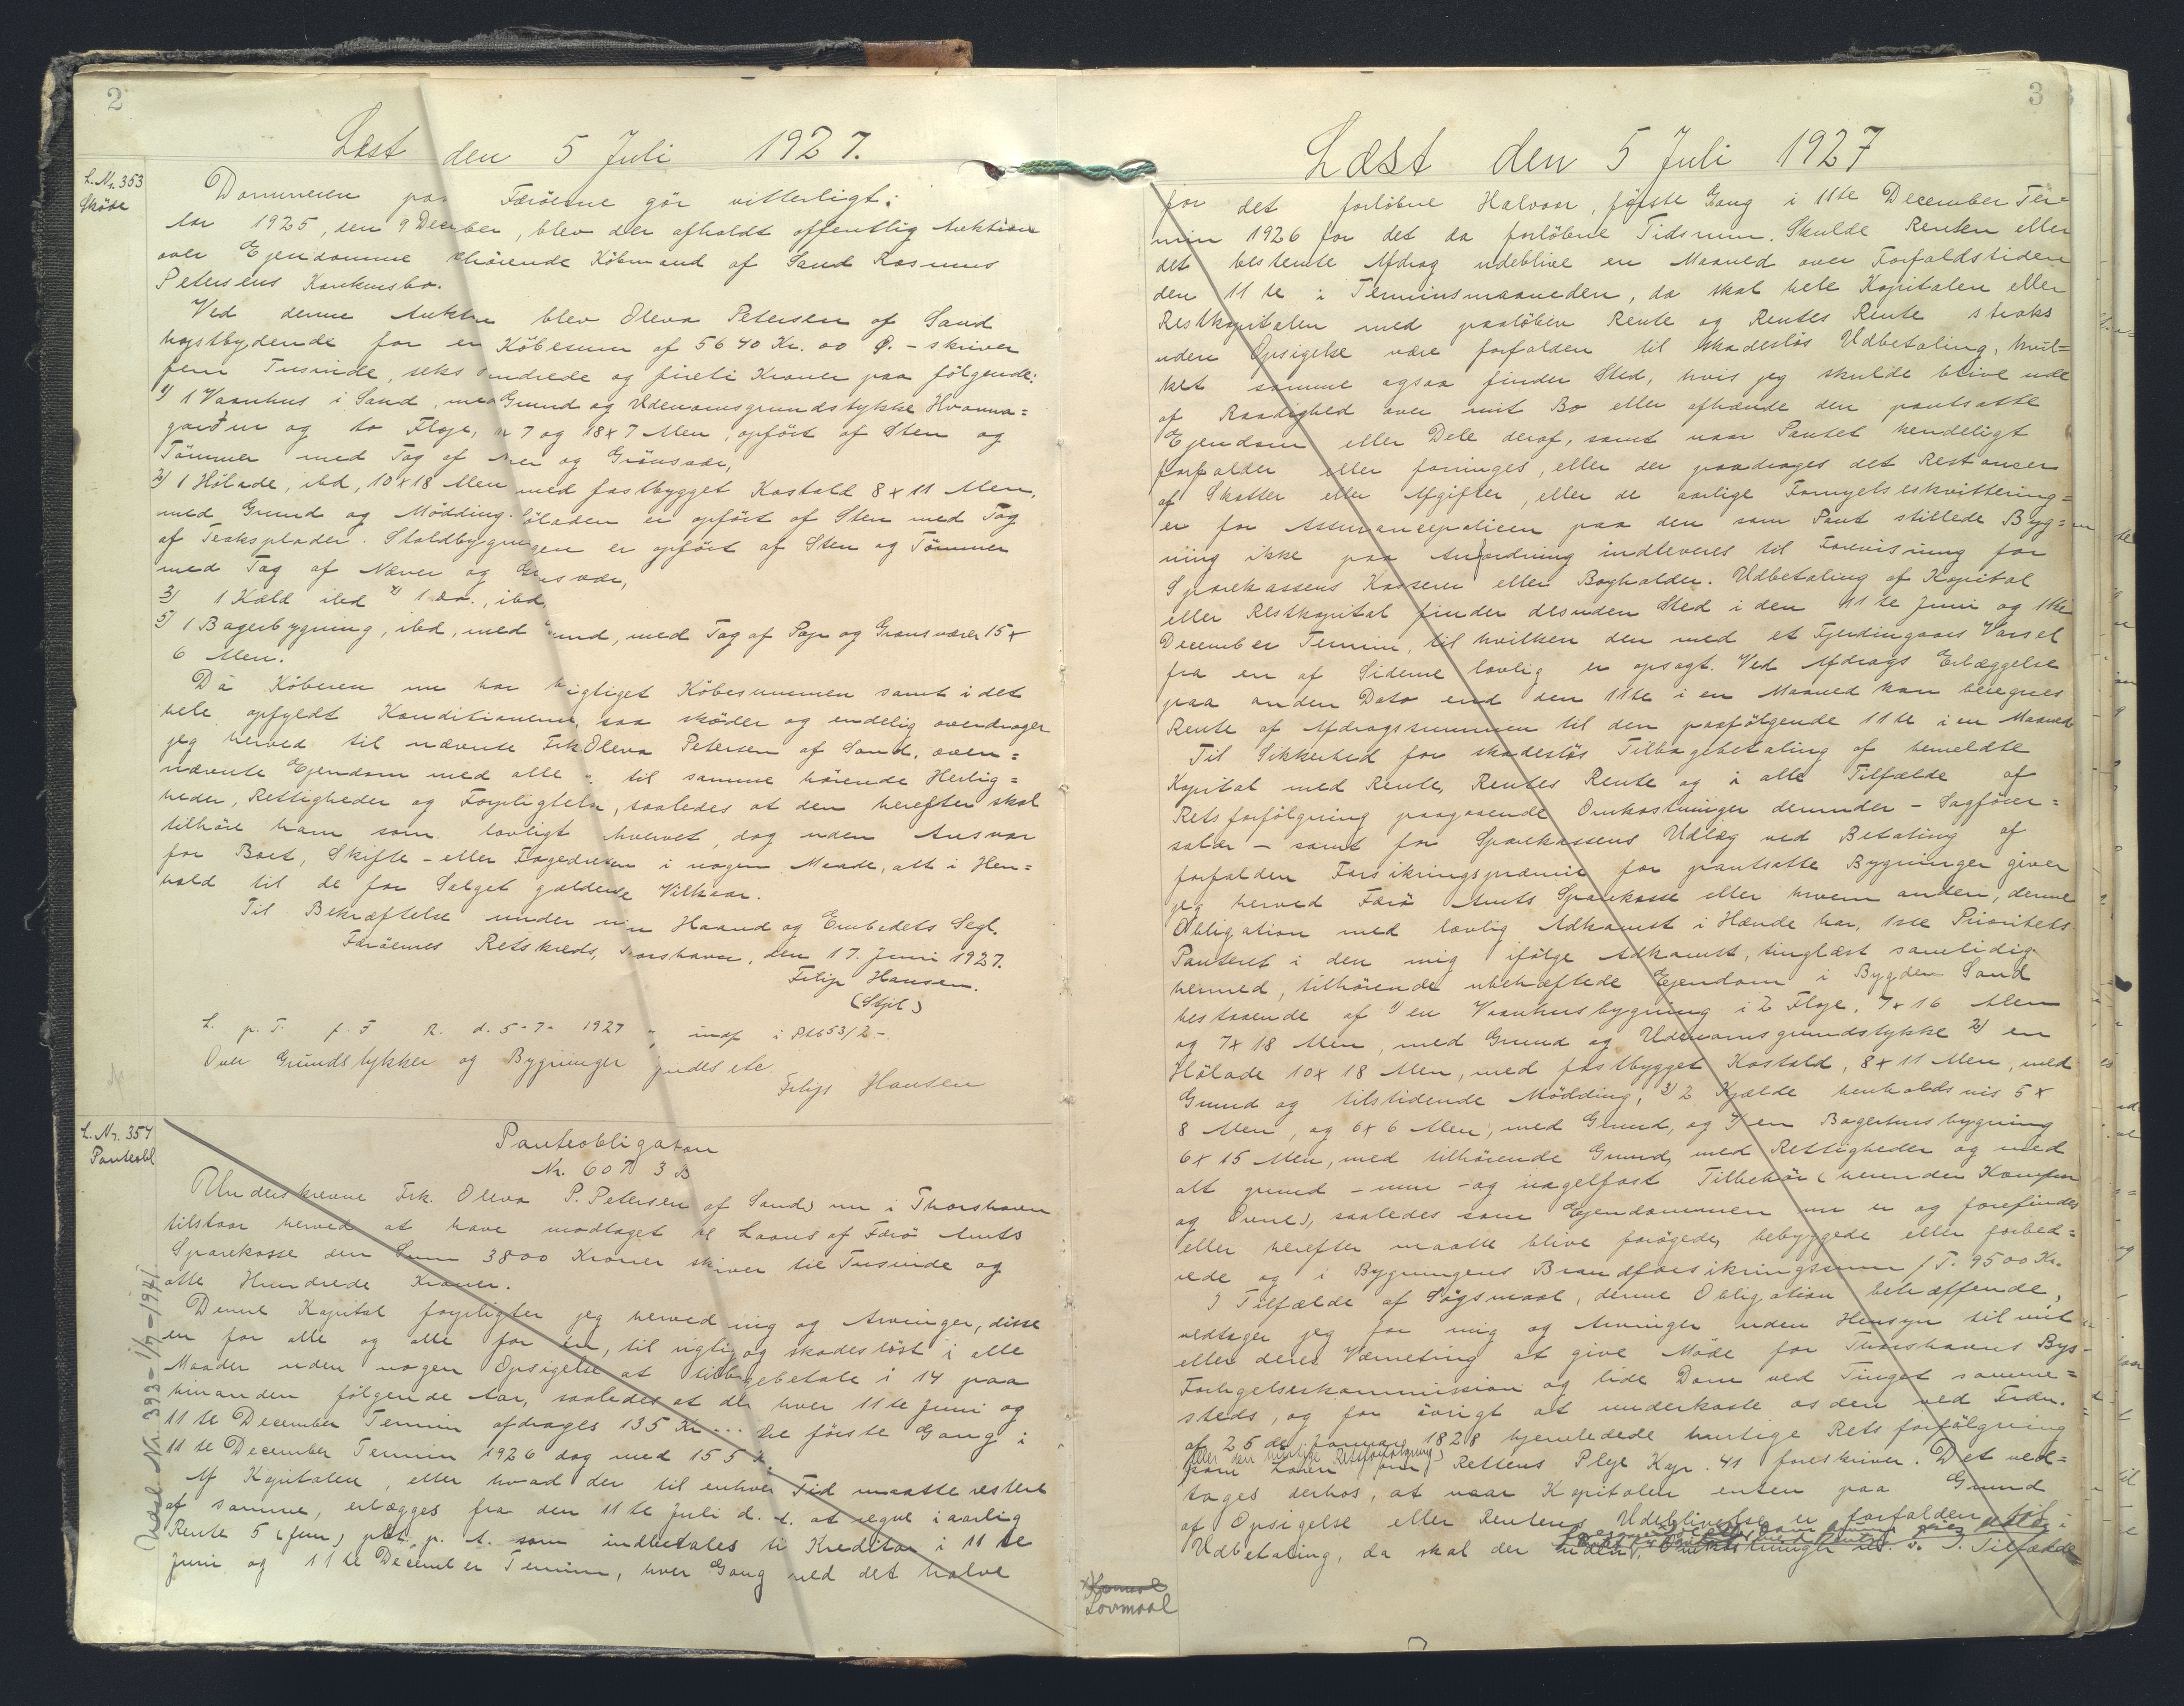 2
Læst den 5 Juli 1927.
L. Nr. 353
Sköde
Dommeren paa Færöerne gör vitterligt:
Aar 1925, den 9 December, blev der afholdt offentlig Auktion
over Ejendomme tilhörende Köbmand af Sand Rasmus
Petersens Konkursbo.
Ved denne Auktion blev Oleva Petersen af Sand
höjstbydende for en Köbesum af 5640 Kr. 00 Ø. - skriver
fem Tusinde, seks Hundrede og fireti Kroner paa fölgende:
1) 1 Vaanhus i Sand, med Grund og Udenomsgrundstykke Hvanna=
garður og to Fløje, 7 og 18 x 7 Alen, opfört af Sten og
Tömmer med Tag af Næver og Grönsvær,
2) 1 Hölade, ibd, 10 x 18 Alen med fastbygget Kostald 8 x 11 Alen,
med Grund og Mödding. Höladen er opfört af Sten med Tag
af Teaksplader. Staldbygningen er opfört af Sten og Tömmer
med Tag af Næver og Grönsvær,
3) 1 Kæld ibd 4) 1 do., ibd,
5) 1 Bagerbygning, ibd, med Grund, med Tag af Pap og Grønsvær 15 x
6 Alen.
Da Köberen nu har rigtiget Köbesummen samt i det
hele opfyldt Konditionerne, saa sköder og endelig overdrager
jeg herved til nævnte Frk Oleva Petersen af Sand, oven=
nævnte Ejendom med alle til samme hörende Herlig=
heder, Rettigheder og Forpligtelser, saaledes at den herefter skal
tilhöre ham som lovligt hvervet, dog uden Ansvar
for Boet, Skifte- eller Fogedretten i nogen Maade, alt i Hen=
hold til de for Salget gældende Vilkaar.
Til Bekræftelse under min Haand og Embedets Segl.
Færöernes Retskreds, Thorshavn, den 17. Juni 1927.
Filip Hansen.
(Stpl.)
L. p. T. f. F R. d. 5-7- 1927 " indf i Ptb 53/2-
Over Grundstykker og Bygninger findes etc.
Filip Hansen
L. Nr. 354
Panteobl
Panteobligation
Nr. 607 3 B
Underskrevne Frk. Oleva P. Petersen af Sand, nu i Thorshavn
tilstaar herved at have modtaget til Laans af Færö Amts
Sparekasse den Sum 3800 Kroner skriver tre Tusinde og
otte Hundrede Kroner.
Denne Kapital forpligter jeg herved mig og Arvinger, disse
en for alle og alle for en, til rigtig og skadeslöst i alle
Maader uden nogen Opsigelse at tilbagebetale i 14 paa
hinanden fölgende Aar, saaledes at der hver 11te Juni og
11te December Termin afdrages 135 Kr ... De förste Gang i
11te December Termin 1926 dog med 155 Kr.
Af Kapitalen, eller hvad der til enhver Tid maatte restere
af samme, erlægges fra den 11te Juli d. A. at regne i aarlig
Rente 5 (fem) pct. p. A. som indbetales til Kreditor i 11te
Juni og 11te December Termin, hver Gang ved det halve
Udsl. Nr. 393 - 1/7 - 1941
3
Læst den 5 Juli 1927
for det forlöbne Halvaar, förste Gang i 11te December Ter=
min 1926 for det da forlöbne Tidsrum. Skulde Renten eller
det bestemte Afdrag udeblive en Maaned over Forfaldstiden
den 11te i Terminsmaaneden, da skal hele Kapitalen eller
Restkapitalen med paalöben Rente og Rentes Rente straks
uden Opsigelse være forfalden til skadeslös Udbetaling, hvil=
ket samme ogsaa finder Sted, hvis jeg skulde blive ude
af Raadighed over mit Bo eller afhænde den pantsatte
Ejendom eller Dele deraf, samt naar Pantet kendeligt
forfalder eller foringes, eller der paadrages det Restancer
af Skatter eller Afgifter, eller de aarlige Fornyelseskvittering=
er for Assurancepolicen paa den som Pant stillede Byg=
ning ikke paa Anfordring indleveres til Forevisning for
Sparekassens Kasserer eller Bogholder. Udbetaling af Kapital
eller Restkapital finder desuden Sted i den 11te Juni og 11te
December Termin, til hvilken den med et Fjerdingaars Varsel
fra en af Siderne lovlig er opsagt. Ved Afdrags Erlæggelse
paa anden Dato end den 11te i en Maaned kan beregnes
Rente af Afdragssummen til den paafölgende 11te i en Maaned
Til Sikkerhed for skadeslös Tilbagebetaling af bemeldte
Kapital med Rente, Rentes Rente og i alle Tilfælde af
Retsforfölgning paagaaende Omkostninger derunder - Sagförer=
salær - samt for Sparekassens Udlæg ved Betaling af
forfalden Forsikringspræmie for pantsatte Bygninger giver
jeg herved Færö Amts Sparekasse eller hvem anden, denne
Obligation med lovlig Adkomst i Hænde har, 1ste Prioritets
Panteret i den mig ifölge Adkomst, tinglæst samtidig
hermed, tilhörende ubehæftede Ejendom i Bygden Sand
bestaaende af 1) en Vaanhusbygning i 2 Fløje, 7 x 16 Alen
og 7 x 18 Alen, med Grund og Udenomsgrundstykke 2) en
Hölade 10 x 18 Alen, med fastbygget Kostald, 8 x 11 Alen, med
Grund og tilstödende Mödding, 3) 2 Kjælde henholdsvis 5 x
8 Alen, og 6 x 6 Alen, med Grund, og 4) en Bagerhusbygning
6 x 15 Alen, med tilhörende Grund, med Rettigheder og med
alt grund- mur- og nagelfast Tilbehör (herunder Komfur
og Ovne), saaledes som Ejendommen nu er og forefindes
eller herefter maatte blive forögede, bebyggede eller forbed=
rede og i Bygningens Brandforsikringssum / T. 9500 Kr.
I Tilfælde af Sögsmaal, denne Obligation betræffende,
vedtager jeg for mig og Arvinger uden Hensyn til mit
eller deres Værneting at give Möde for Thorshavns Bys-
Forligelseskommission og lide Dom ved Tinget samme=
steds, og for övrigt at underkaste os den ved Frdn.
af 25de Januar 1828 hjemlede hurtige Retsforfölgning
(eller den hurtige Retsforfölgning)
som Loven om Rettens Pleje Kap. 41 foreskriver. Det ved=
tages derhos, at naar Kapitalen enten paa Grund
af Opsigelse eller Rentens Udeblivelse er forfalden til
Udbetaling, da skal der Omkostninger Tilfælde
Lovmaal